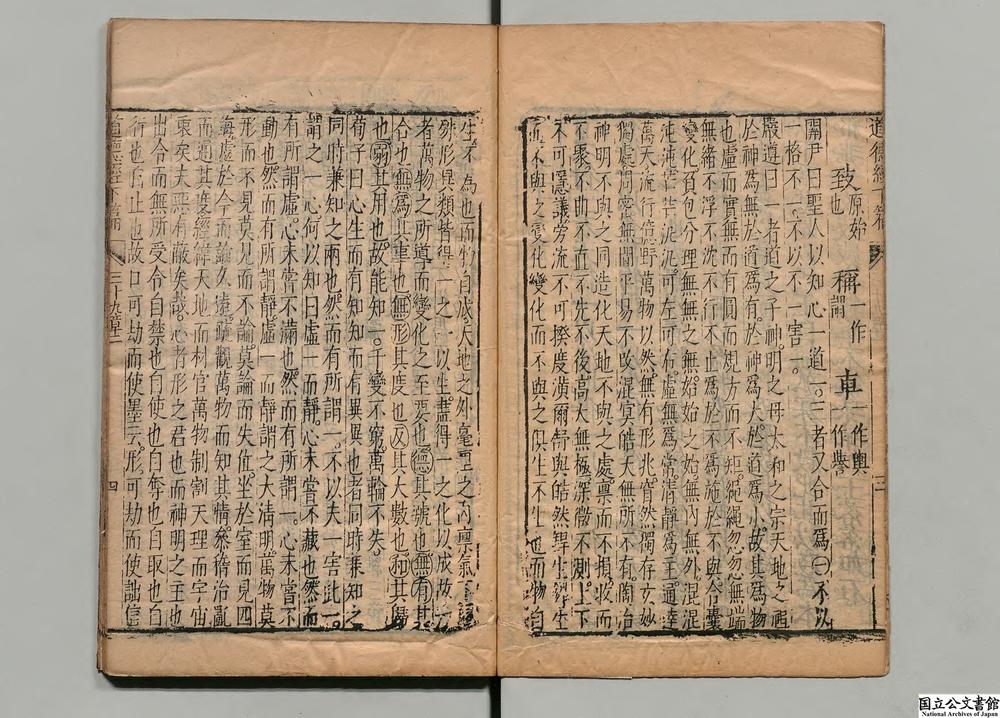 道德經下篇 三
致原始也 稱一作謂 車一作輿一作譽
關尹曰聖人以知心一道一。三者又合而為一不以
一格不一。不以不一害一。
嚴遵曰一者道之子神明之母太和之宗天地之祖
於神為無於道為有。於神為大於道為小故其為物
也虛而實無而有圓而不規方而不矩繩繩忽忽無端
無緒不浮不沈不行不止為於不為施於不與合囊
變化負包分理無無之無始始之始無內無外混混
沌沌芒芒泥泥可左可右虛無為常清靜為主通達
萬天流行億野萬物以然無有形兆窅然獨存玄妙
獨處周密無間平易不改混冥皓天無所不有陶冶
神明不與之同造化天地不與之處稟而不損收而
不聚不曲不直不先不後高大無極深微不測上下
不可隱議旁流不可揆度潢爾舒與皓然銲生銲生
而不與之變化變化而不與之俱生不生也而物自
生不為也而物自成天地之外毫釐之內稟氣不同
殊形異類皆得一之一以生盡得一之化以成故一
者萬物之所導而變化之至要也德其號也無有其
舍也無為其事也無形其度也反其大數也和其歸
也弱其用也故能知一。千變不窮萬輪不失。
荀子曰心生而有知知而有異異也者同時兼知之
同時兼知之兩也然而有所謂一。不以夫一害此一。
謂之一心何以知曰虛一而靜。心未嘗不藏也然而
有所謂虛。心未嘗不滿也然而有所謂一。心未嘗不
動也然而有所謂靜虛一而靜謂之大清明萬物莫
形而不見莫見而不論莫論而失位坐於室而見四
海處於今而論久遠疏觀萬物而知其情參稽治亂
而通其度經緯天地而材官萬物制割天理而宇宙
裏矣夫惡有蔽矣哉。心者形之君也而神明之主也
出令而無所受令自禁也自使也自奪也自取也自
行也自止也故口可劫而使墨云形可劫而使詘信
道德經下篇 三十九章二 四
国立公文書館
National Archives of Japan